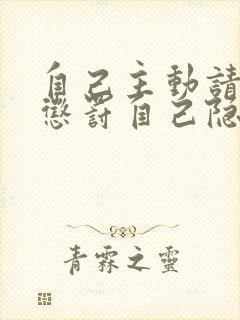 自己主動請
懲罰自己隐
青霖之靈